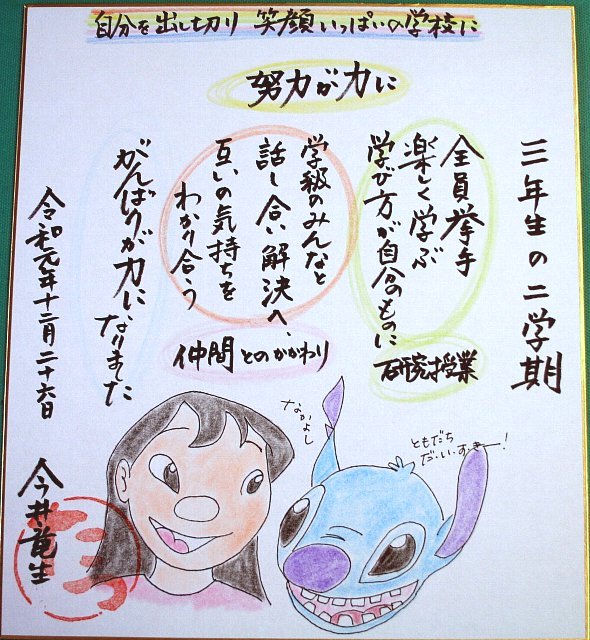 自分を出し切り 笑顔いっぱいの学校に
努力が力に
三年生の二学期
全員挙手
楽しく学ぶ
学び方が自分のものに
研究授業
学級のみんなと
話し合い解決へ、
互いの気持ちを
わかり合う
仲間とのかかわり
がんばりが力に、
なりました
令和元年十二月二十六日
今井竜生
なかよし
ともだち
だ・い・すーきー！